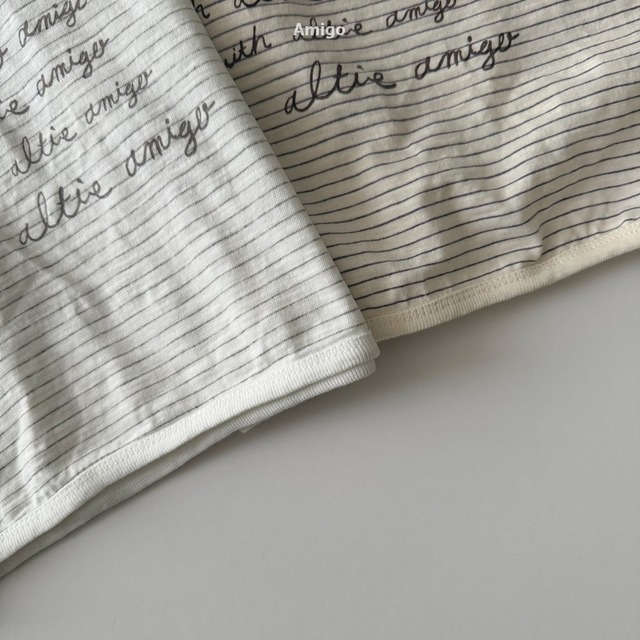 Amigo
amigo
amigo
altie amigo
altie amigo
altie amigo
with
altie amigo